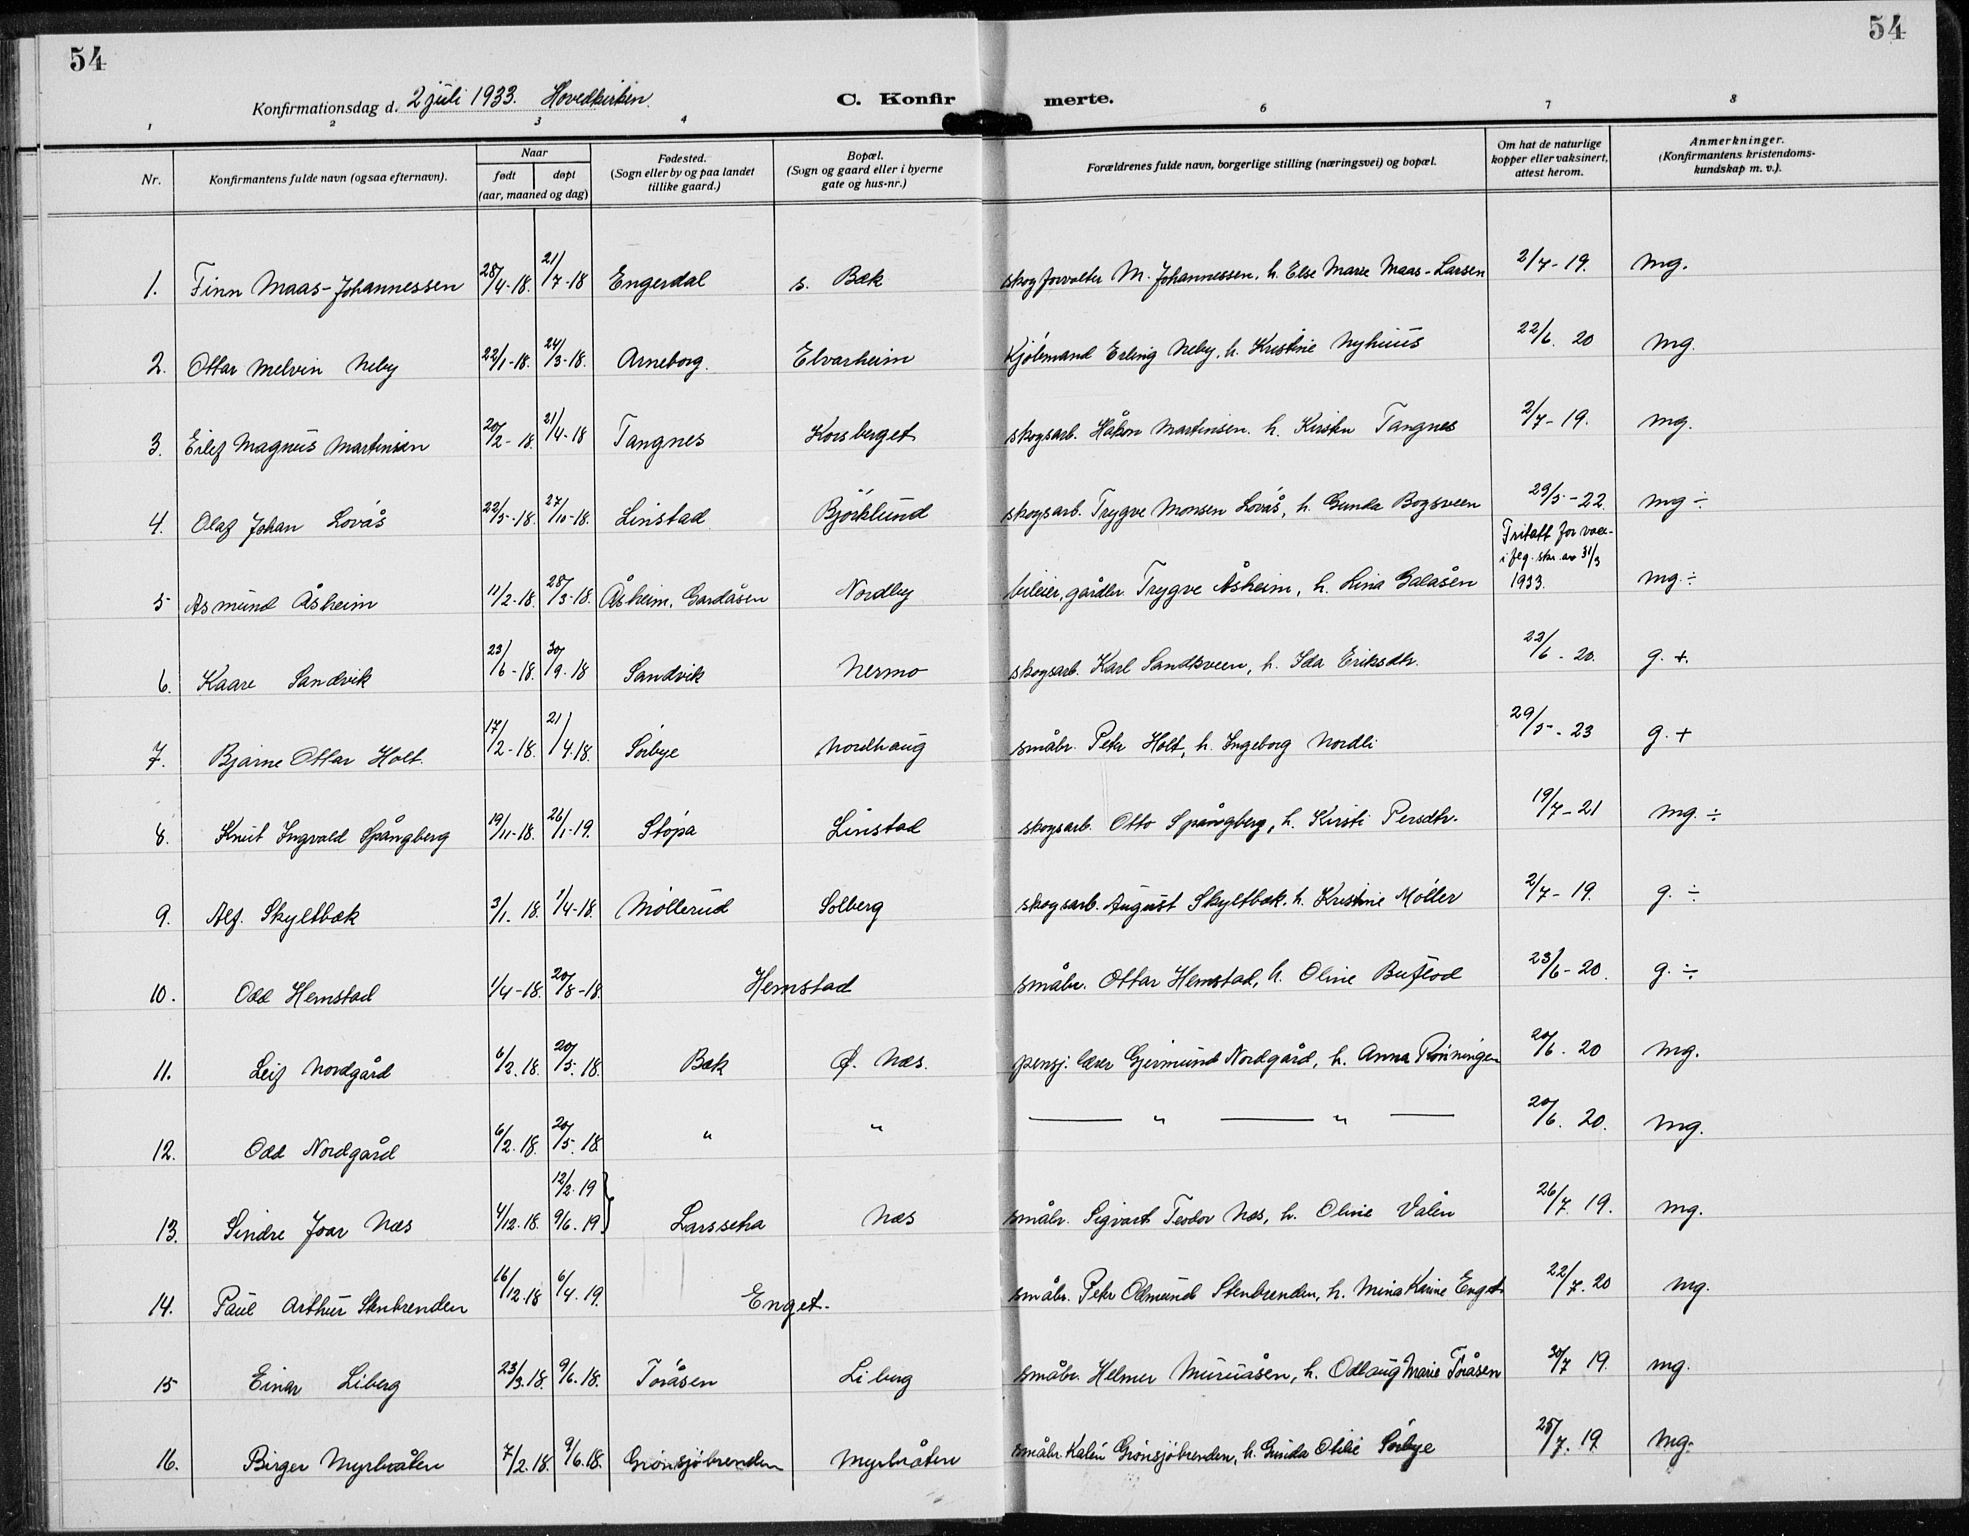 54
54
Konfirmationsdag d. 2 juli 1933. Hovedkirken.
C. Konfirmerte.
1 2 3 4 6 7 8
Nr.
Konfirmantens fulde navn (ogsaa efternavn).
Naar
født
døpt
(aar, maaned og dag)
Fødested.
(Sogn eller by og paa landet
tillike gaard.)
Bopæl.
(Sogn og gaard eller i byerne
gate og hus-nr.)
Forældrenes fulde navn, borgerlige stilling (næringsvei) og bopæl.
Om hat de naturlige
kopper eller vaksinert,
attest herom.
Anmerkninger.
(Konfirmantens kristendoms-
kundskap m. v.).
1. Finn Maas-Johannessen 28/4-18. 21/7-18 Engerdal s. Bæk skogforvalter M. Johannessen, h. Else Marie Maas-Larsen 2/7-19. mg.
2. Ottar Melvin Neby 22/1-18. 24/3-18. Arneborg. Elvarheim Kjøbmand Erling Neby, h. Kristine Nyhuus 22/6. 20 mg.
3. Eilif Magnus Martinsen 20/2-18 21/4-18 Tangnes Korsberget skogsarb. Håkon Martinsen. h. Kirsten Tangnes 2/7-19. mg.
4. Olaf Johan Lovås 22/5-18. 27/10-18. Linstad Björklund skogsarb. Trygve Monsen Lovås, h. Gunda Bogsveen 29/5-22. mg ÷
5 Asmund Åsheim 11/2-18. 28/3-18. Åsheim, Gardåsen Nordby bileier, gårdbr. Trygve Åsheim, h. Lina Galaåsen Fritatt for vacc- i flg. skr. av 31/3 1933. mg. ÷
6. Kaare Sandvik 23/6-18. 30/9-18 Sandvik Nermo skogsarb. Karl Sandkveen, h. Ida Eriksdtr. 22/6-20. g. +.
7. Bjarne Ottar Holt. 17/2-18. 21/4.18. Sörbye Nordhaug småbr. Petr Holt, h. Ingeborg Nordli 29/5-23 g. +
8. Knut Ingvald Spångberg 19/11-18. 26/1-19. Støpa Linstad skogsarb. Otto Spångberg, h. Kirsti Persdtr. 19/7-21 mg. ÷
9. Alf. Skyltbæk 3/1. 18. 1/4-18. Møllerud Solberg skogsarb. August Skyltbæk. h. Kristine Möller 2/7-19. g. ÷
10. Odd Hemstad 1/4-18. 20/8-18. Hemstad småbr. Ottar Hemstad, h. Oline Buflod 23/6-20. g. ÷
11. Leif Nordgård 6/2.18. 20/5.18. Bæk Ø. Næs. pensj. lærer Gjermund Nordgård, h. Anna Rønningen 20/6. 20 mg.
12. Odd Nordgård 6/2.18. 20/5.18. " " — " — " — 20/6. 20. mg.
13. Sindre Joar Næs 4/12.18. 12/2.19 9/6.19} Larsseha Næs småbr. Sigvart Teodor Næs, h. Oline Vålen 26/7. 19. mg.
14. Paul Arthur Stenbrenden 16/12.18 6/4.19. Enget. småbr. Petr Odmund Stenbrenden, h. Mina Karine Enget. 22/7.20 mg.
15 Einar Liberg 23/3.18. 9/6.18. Toråsen Liberg småbr. Helmer Muruåsen, h. Odlaug Marie Toråsen 30/7 19. mg.
16. Birger Myrbråten 7/2.18. 9/6.18. Grönsjöbrenden Myrbråten småbr. Grönsjöbrenden, h. Gunda Otilie Sörbye 25/7. 19. mg.